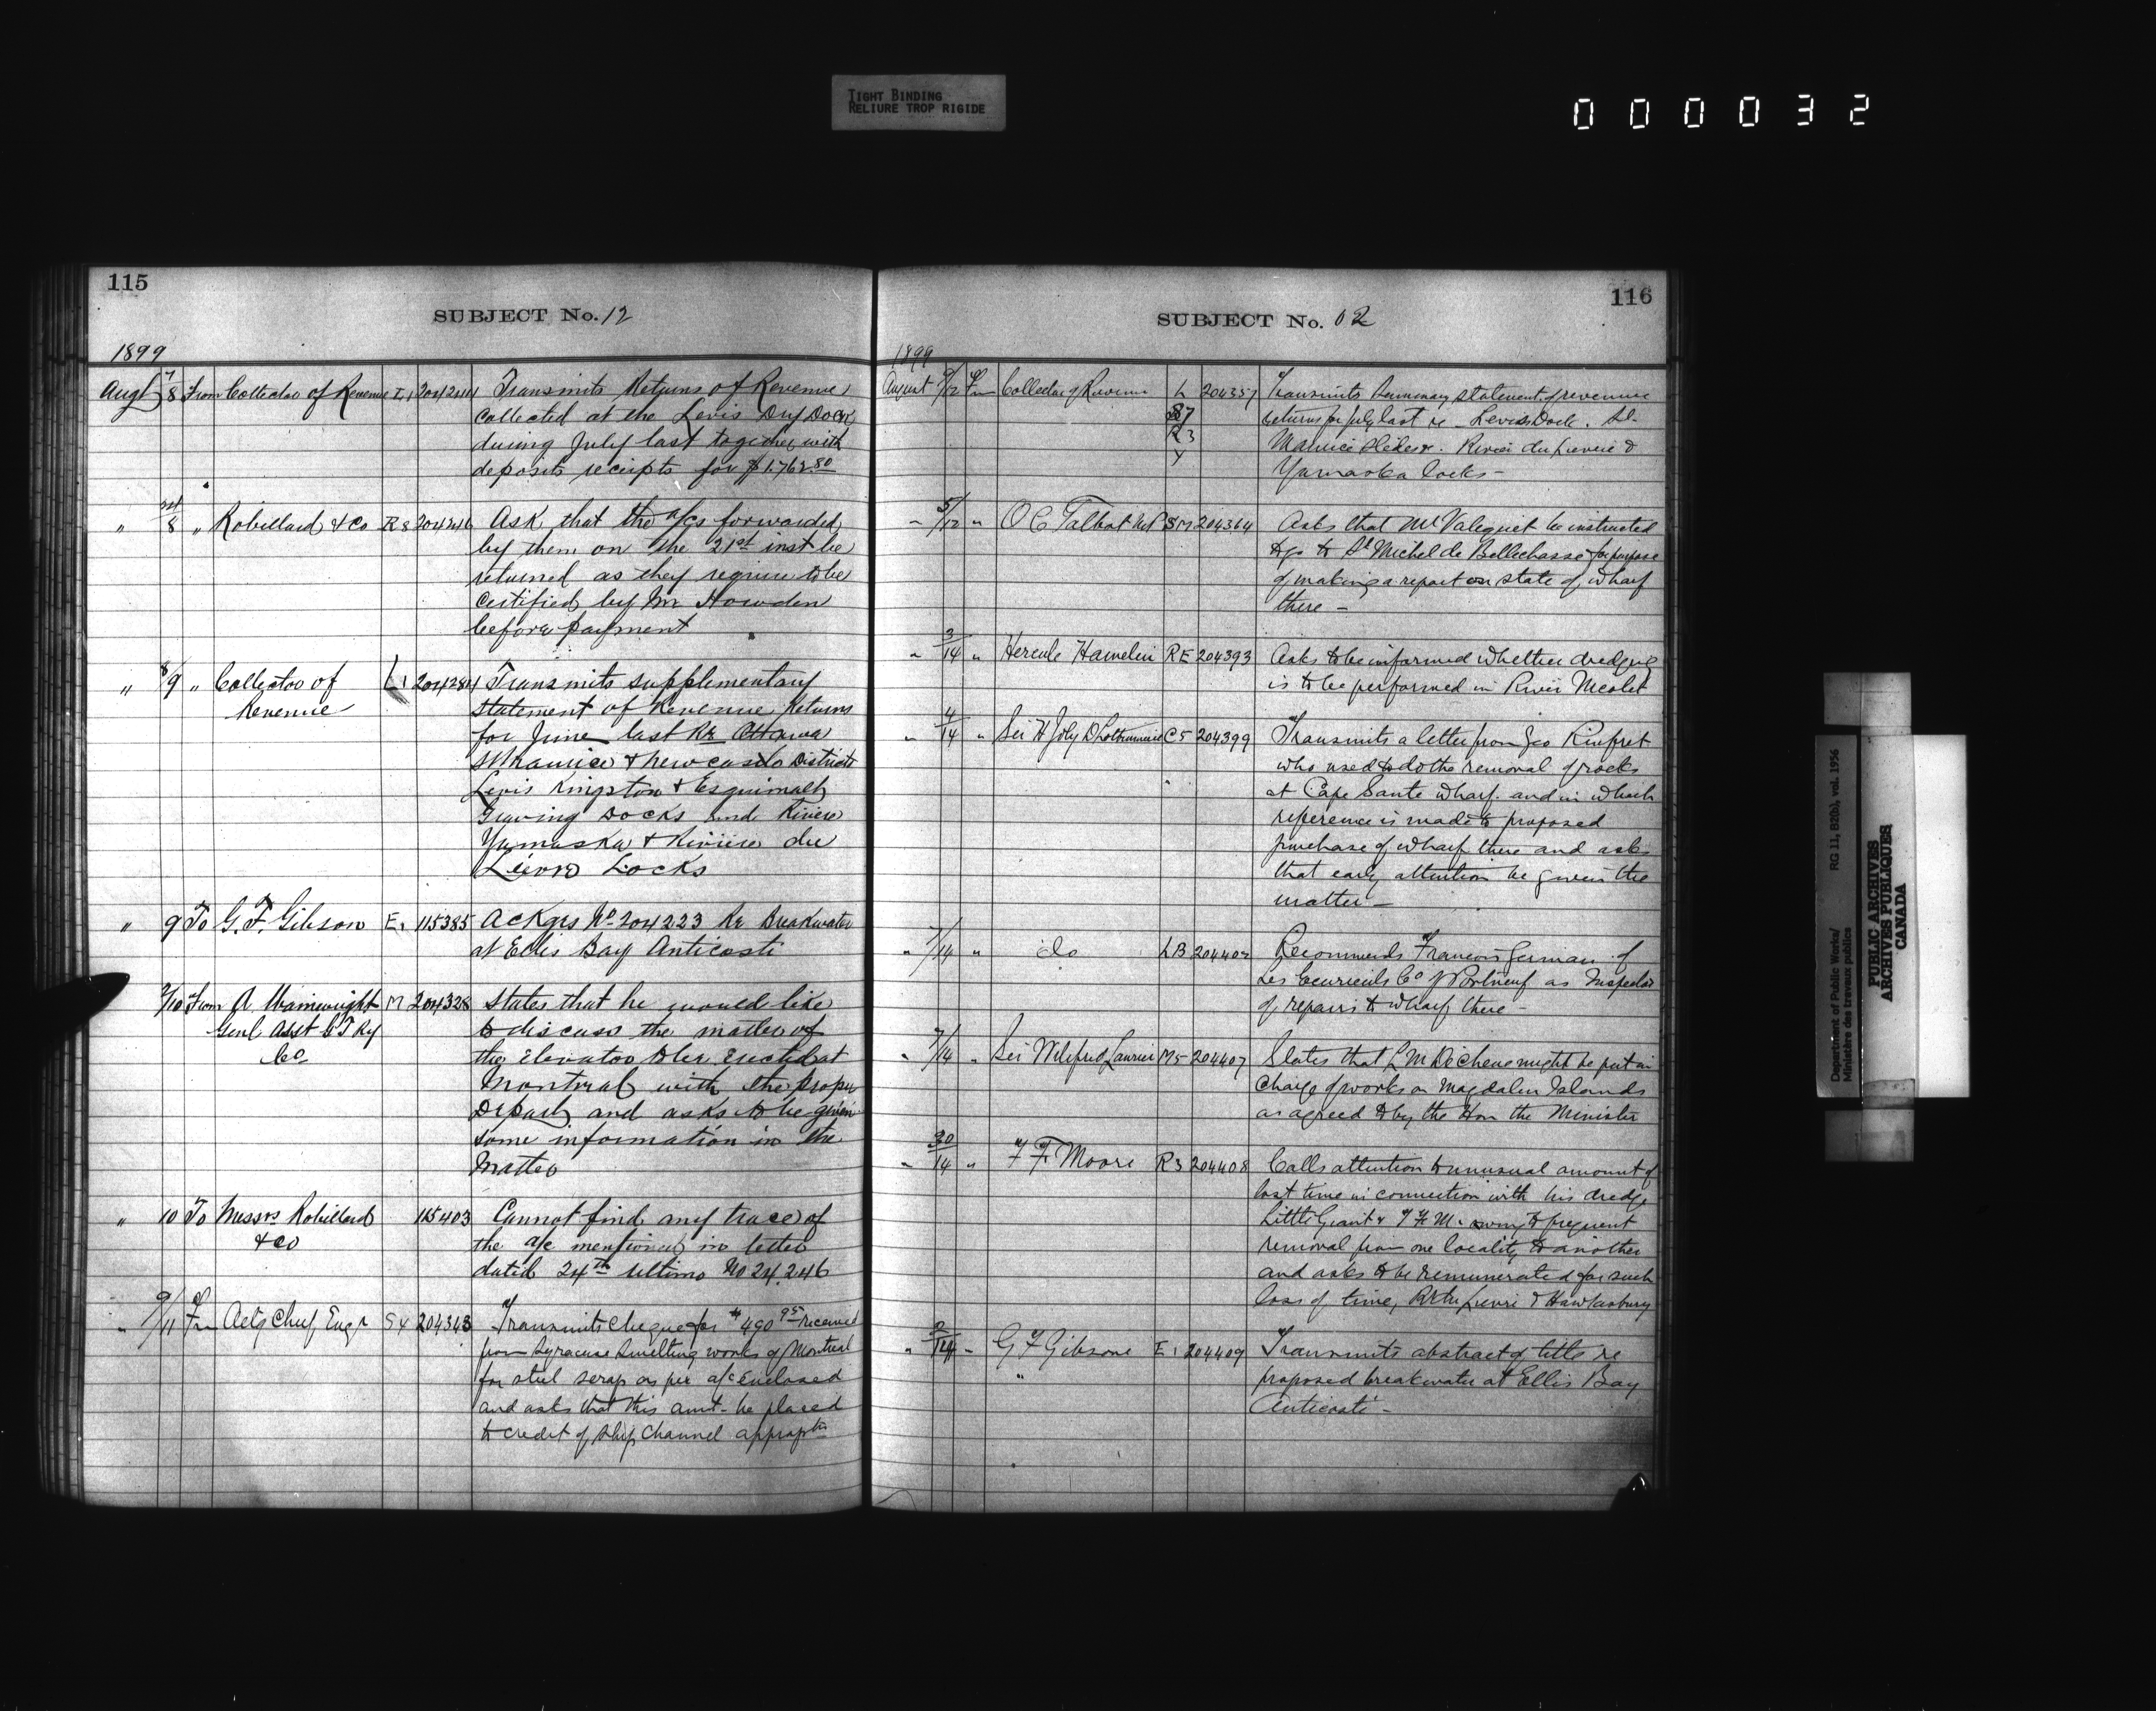 TIGHT BINDING
RELIURE TROP RIGIDE
000032
115
SUBJECT No. 12
1899
Augt 7/8 From Collector of Revenue L1 204244 Transmits Returns of Revenue
collected at the Levis Dry Dock
during July last together with
deposits receipts for $1.762.80
" 8 " Robillard & Co R8 204246 Ask that the a/cs forwarded
by them on the 21st inst be
returned as they require to be
certified by Mr Howden
before payment
" 8/9 " Collector of L1 204284 Transmits supplementary
Revenue statement of Revenue Returns
for June last Re Ottawa
St Maurice & Newcastle Districts
Levis Kingston & Esquimalt
Graving Docks and Riviere
Yamaska & Riviere du
Lievre Locks
" 9 To G. F. Gibson E1 115385 Ackges No 204223 Re Breakwater
at Ellis Bay Anticosti
9/10 From A. Wainwright M 204328 States that he would like
Genl Asst G T Ry to discuss the matter of
Co the Elevator to be erected at
Montreal with the proper
Depart and asks to be given
some information in the
matter
" 10 To Messrs Robillard 115403 Cannot find any trace of
& Co the a/c mentioned in letter
dated 24th ultimo No 24.246
" 9/11 Fm Actg Chief Engr S4 204343 Transmits cheque for $490.95 received
from Syracuse Smelting works of Montreal
for steel scrap as per a/c enclosed
and asks that this amt. be placed
to credit of Ship Channel appropтn
116
SUBJECT No. 02
1899
August 9/12 Fm Collector of Revenue L 204357 Transmits Summary statement of revenue
S7 returns for July last re Levis Dock. St.
R3 Maurice Slides &. Riviere du Lievre &
Y Yamaska locks -
" 5/12 " O C Talbot M.P. SM 204364 Asks that Mr Valiquet be instructed
to go to St Michel de Bellechasse for purpose
of making a report on state of wharf
there -
" 3/14 " Hercule Hamelin RE 204393 Asks to be informed whether dredging
is to be performed in River Nicolet
" 4/14 " Sir H Joly D Lotbiniere C5 204399 Transmits a letter from Geo Rinfret
who used to do the removal of rocks
at Cape Sante wharf. and in which
reference is made to proposed
purchase of wharf there and asks
that early attention be given the
matter -
" 7/14 " do LB 204402 Recommends Francois German of
Les Ecureuils Co of Portneuf as Inspector
of repairs to wharf there -
" 7/14 " Sir Wilfred Laurier M5 204407 States that L M Dechene might be put in
charge of works on Magdalen Islands
as agreed to by the Hon the Minister
" 30/14 " F F Moore R3 204408 Calls attention to unusual amount of
lost time in connection with his dredge
Little Giant & F F M. owing to frequent
removal from one locality to another
and asks to be remunerated for such
loss of time, R du Lievre & Hawkesbury
" 2/14 " G F Gibsone E1 204409 Transmits abstract of title re
" proposed breakwater at Ellis Bay
Anticosti -
Department of Public Works/ RG 11, B2(b), vol. 1956
Ministère des travaux publics
PUBLIC ARCHIVES
ARCHIVES PUBLIQUES
CANADA